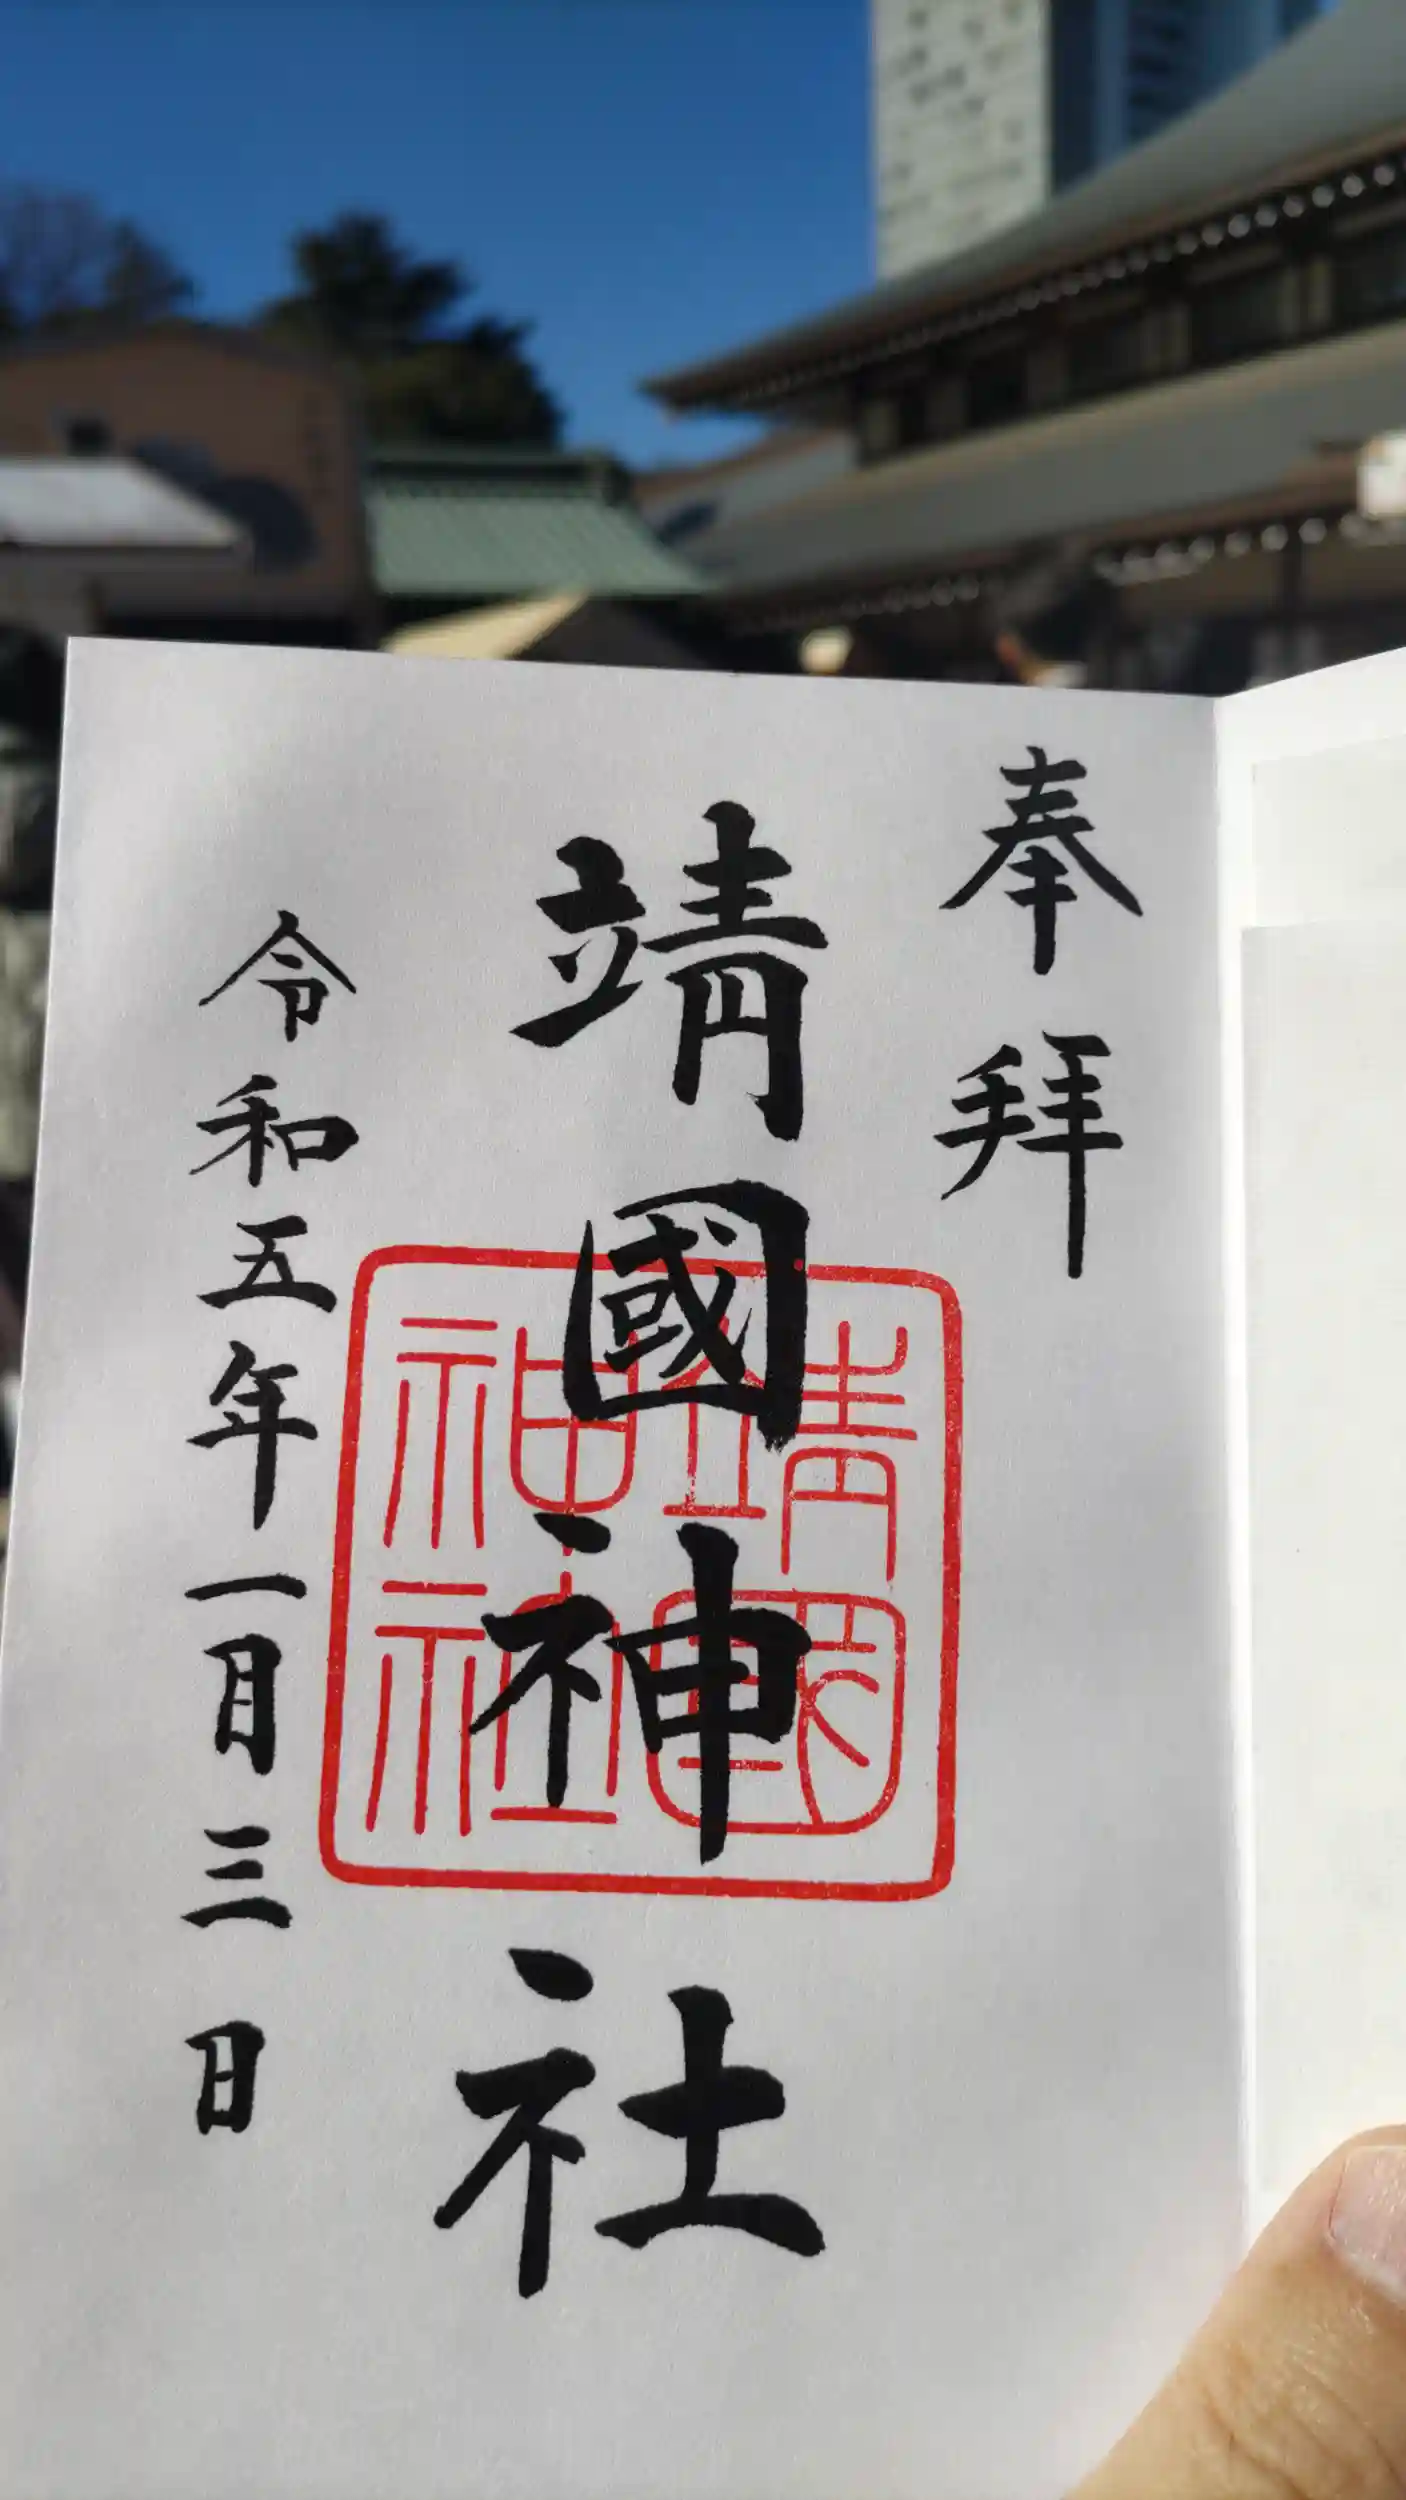 奉拝
靖國神社
靖國神社
令和五年一月三日